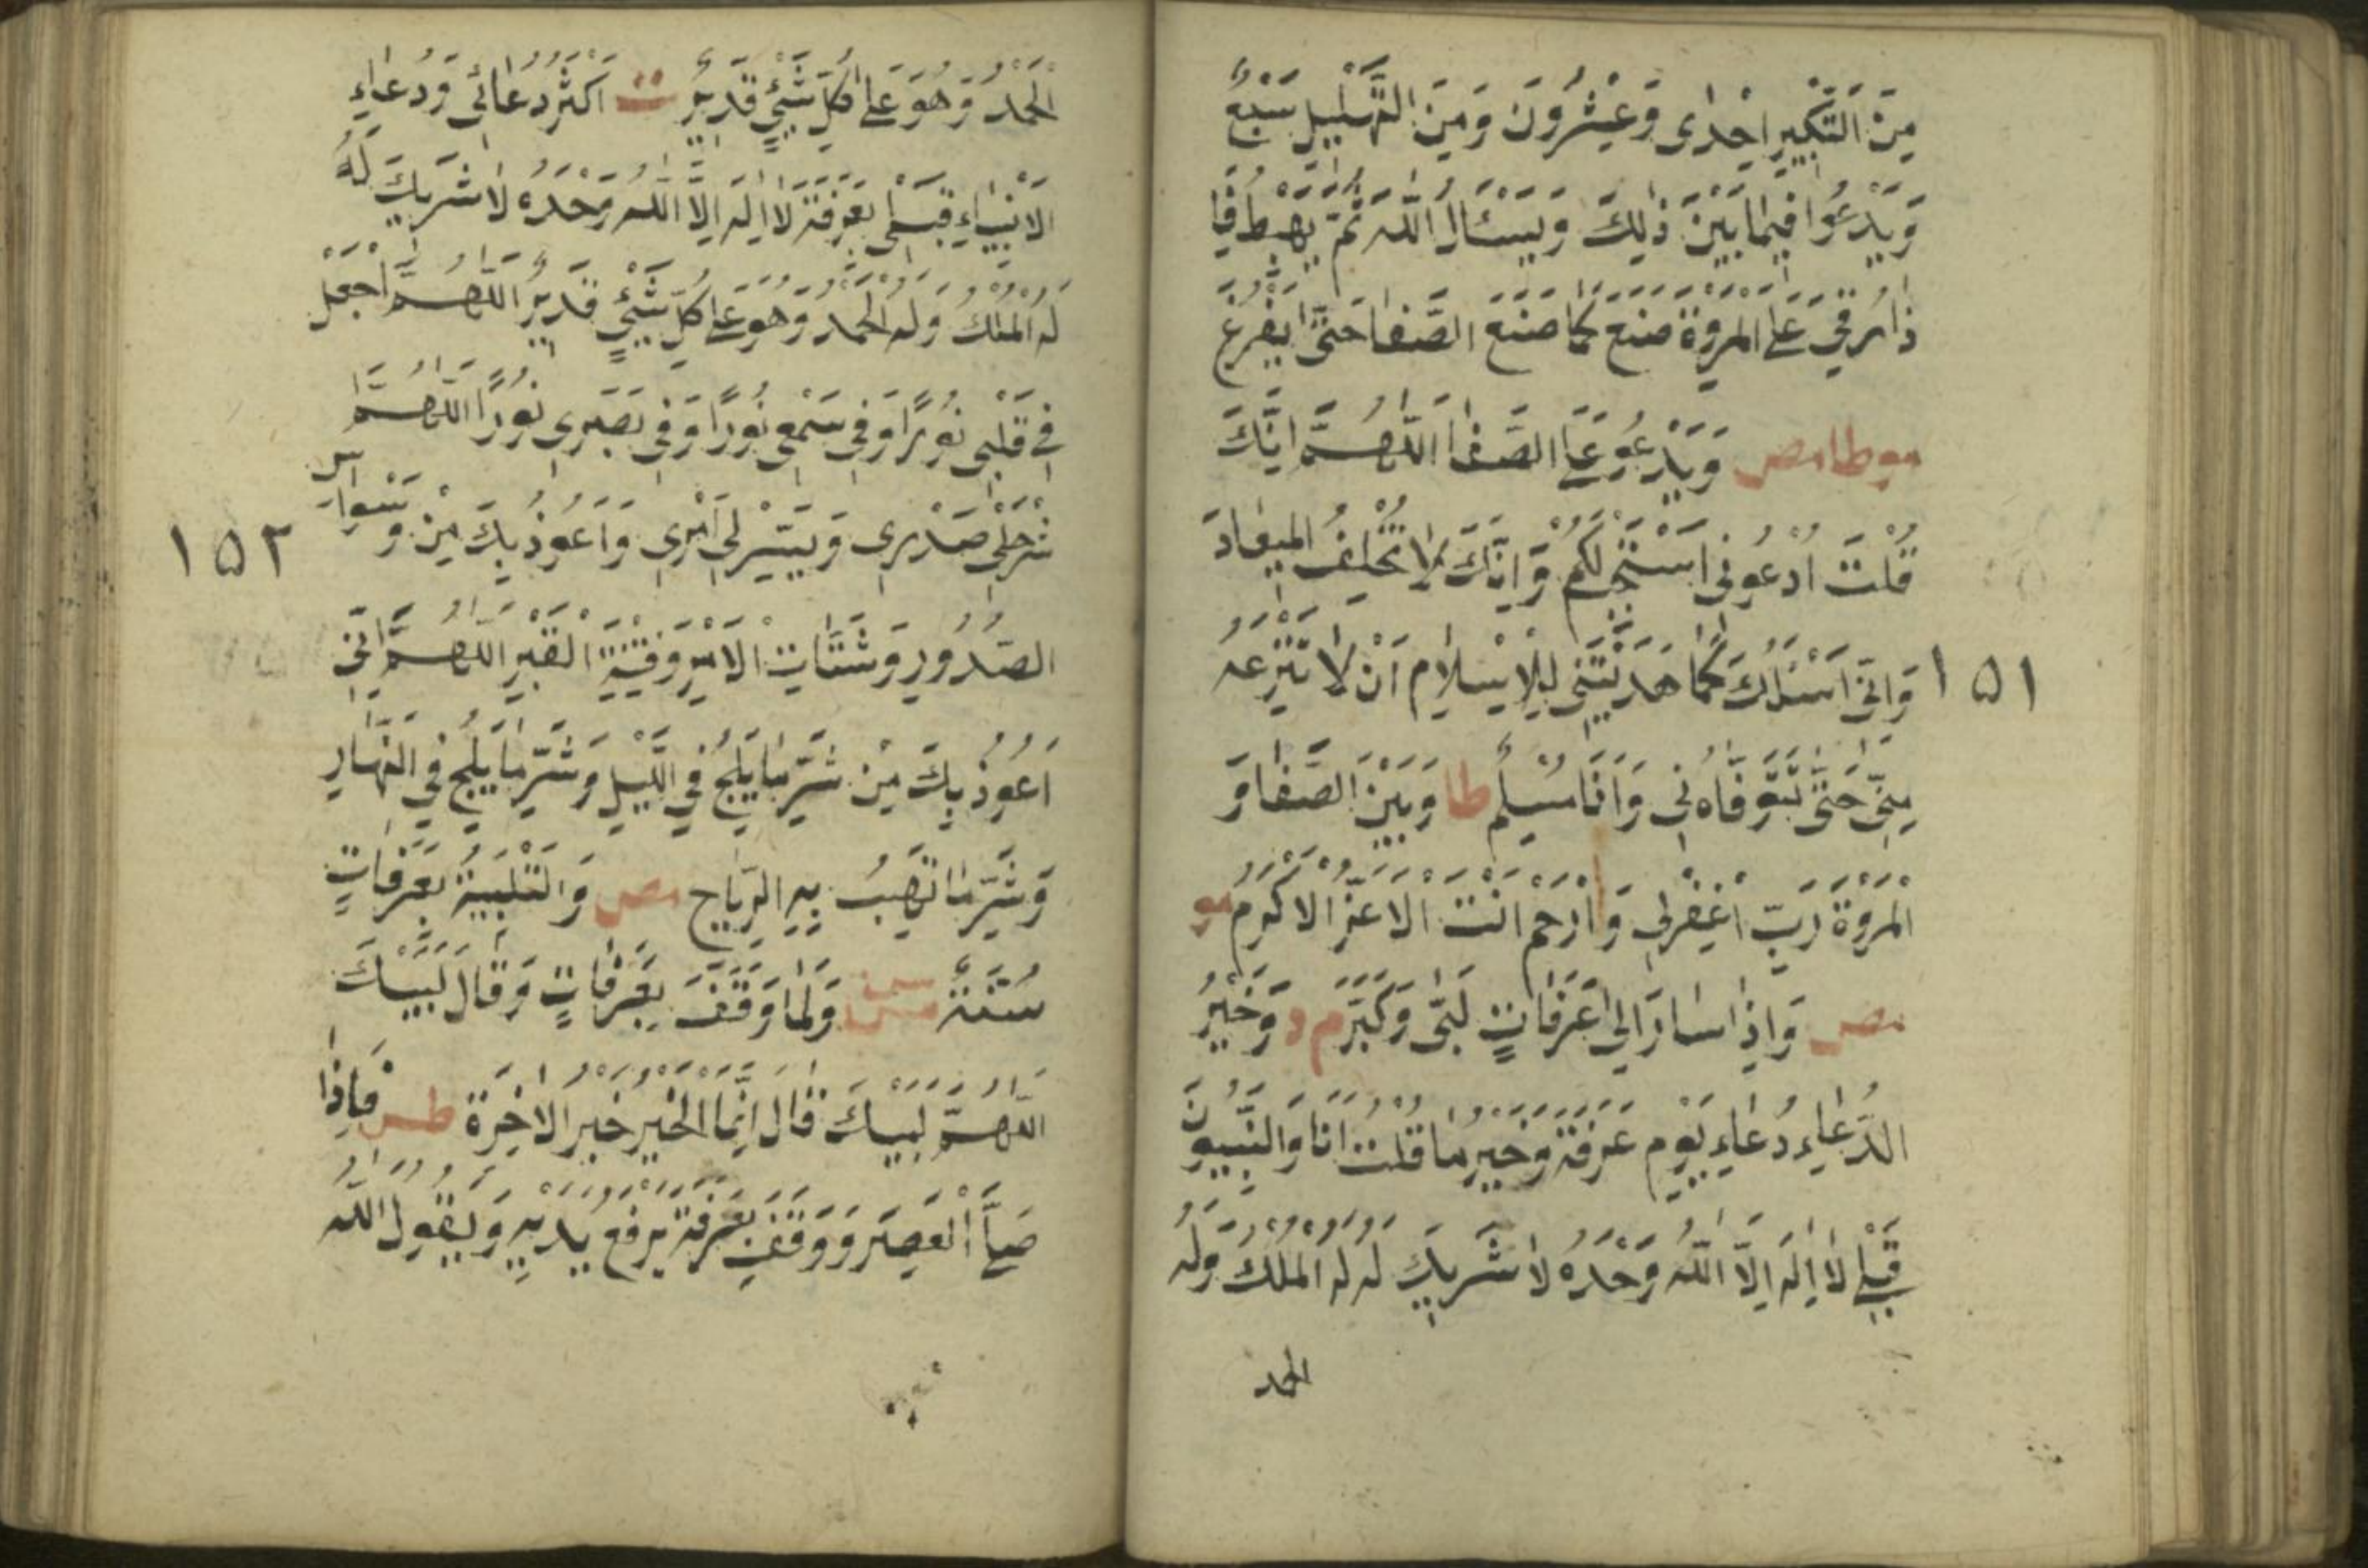 مِنَ التَّكْبِيرِ اِحْدٰى وَعِشْرُونَ وَمِنَ التَّهْلِيلِ سَبْعٌ
وَيَدْعُوا فِيمَا بَيْنَ ذٰلِكَ وَيَسْئَالُ اللّٰهَ ثُمَّ يَهْبِطُ فَاِ
ذَا رَقِيَ عَلَى الْمَرْوَةَ صَنَعَ كَمَا صَنَعَ الصَّفَا حَتّٰى يَفْرُغَ
مو طا مص وَيَدْعُو عَلَى الصَّفَا اَللّٰهُمَّ اِنَّكَ
قُلْتَ ادْعُونِى اَسْتَجِبْ لَكُمْ وَاِنَّكَ لَا تُخْلِفُ الْمِيعَادَ
١٥١ وَاِنِّى اَسْئَلُكَ كَمَا هَدَيْتَنِى لِلْاِسْلَامِ اَنْ لَا تَنْزِعَهُ
مِنِّى حَتّٰى تَتَوَفَّاهُ نِى وَاَنَا مُسْلِمٌ طا وَبَيْنَ الصَّفَا وَ
الْمَرْوَةَ رَبِّ اغْفِرْلِى وَارْحَمْ اَنْتَ الْاَعَزُّ الْاَكْرَمُ مو
مص وَاِذَا سَارَ اِلٰى عَرَفَاتٍ لَبّٰى وَكَبَّرَ م د وَخَيْرُ
الدُّعَاءِ دُعَاءِ يَوْمِ عَرَفَةَ وَخَيْرُ مَا قُلْتُ اَنَا وَالنَّبِيُّونَ
قَبْلِى لَا اِلٰهَ اِلَّا اللّٰهُ وَحْدَهُ لَا شَرِيكَ لَهُ لَهُ الْمُلْكُ وَلَهُ
الحمد
الْحَمْدُ وَهُوَ عَلٰى كُلِّ شَيْءٍ قَدِيرٌ ت اَكْثَرُ دُعَائِى وَدُعَاءِ
الْاَنْبِيَاءِ قَبْلِى بِعَرَفَةَ لَا اِلٰهَ اِلَّا اللّٰهُ وَحْدَهُ لَا شَرِيكَ لَهُ
لَهُ الْمُلْكُ وَلَهُ الْحَمْدُ وَهُوَ عَلٰى كُلِّ شَيْءٍ قَدِيرٌ اَللّٰهُمَّ اجْعَلْ
فِى قَلْبِى نُورًا وَفِى سَمْعِى نُورًا وَفِى بَصَرِى نُورًا اَللّٰهُمَّ ا
شْرَحْ لِى صَدْرِى وَيَسِّرْ لِى اَمْرِى وَاَعُوذُ بِكَ مِنْ وَسْوَاسِ
١٥٢
الصُّدُورِ وَشَتَاتِ الْاَمْرِ وَفِتْنَةِ الْقَبْرِ اَللّٰهُمَّ اِنِّى
اَعُوذُ بِكَ مِنْ شَرِّ مَا يَلِجُ فِي اللَّيْلِ وَشَرِّ مَا يَلِجُ فِي النَّهَارِ
وَشَرِّ مَا تَهُبُّ بِهِ الرِّيَاحِ مص وَالتَّلْبِيَةُ بِعَرَفَاتٍ
سُنَّةٌ س مس وَلَمَّا وَقَفَ بِعَرَفَاتٍ وَقَالَ لَبَّيْكَ
اللّٰهُمَّ لَبَّيْكَ قَالَ اِنَّمَا الْخَيْرُ خَيْرُ الْاٰخِرَةِ طس فَاِذَا
صَلَّى الْعَصْرَ وَوَقَفَ بِعَرَفَةَ يَرْفَعُ يَدَيْهِ وَيَقُولُ اللّٰهُ